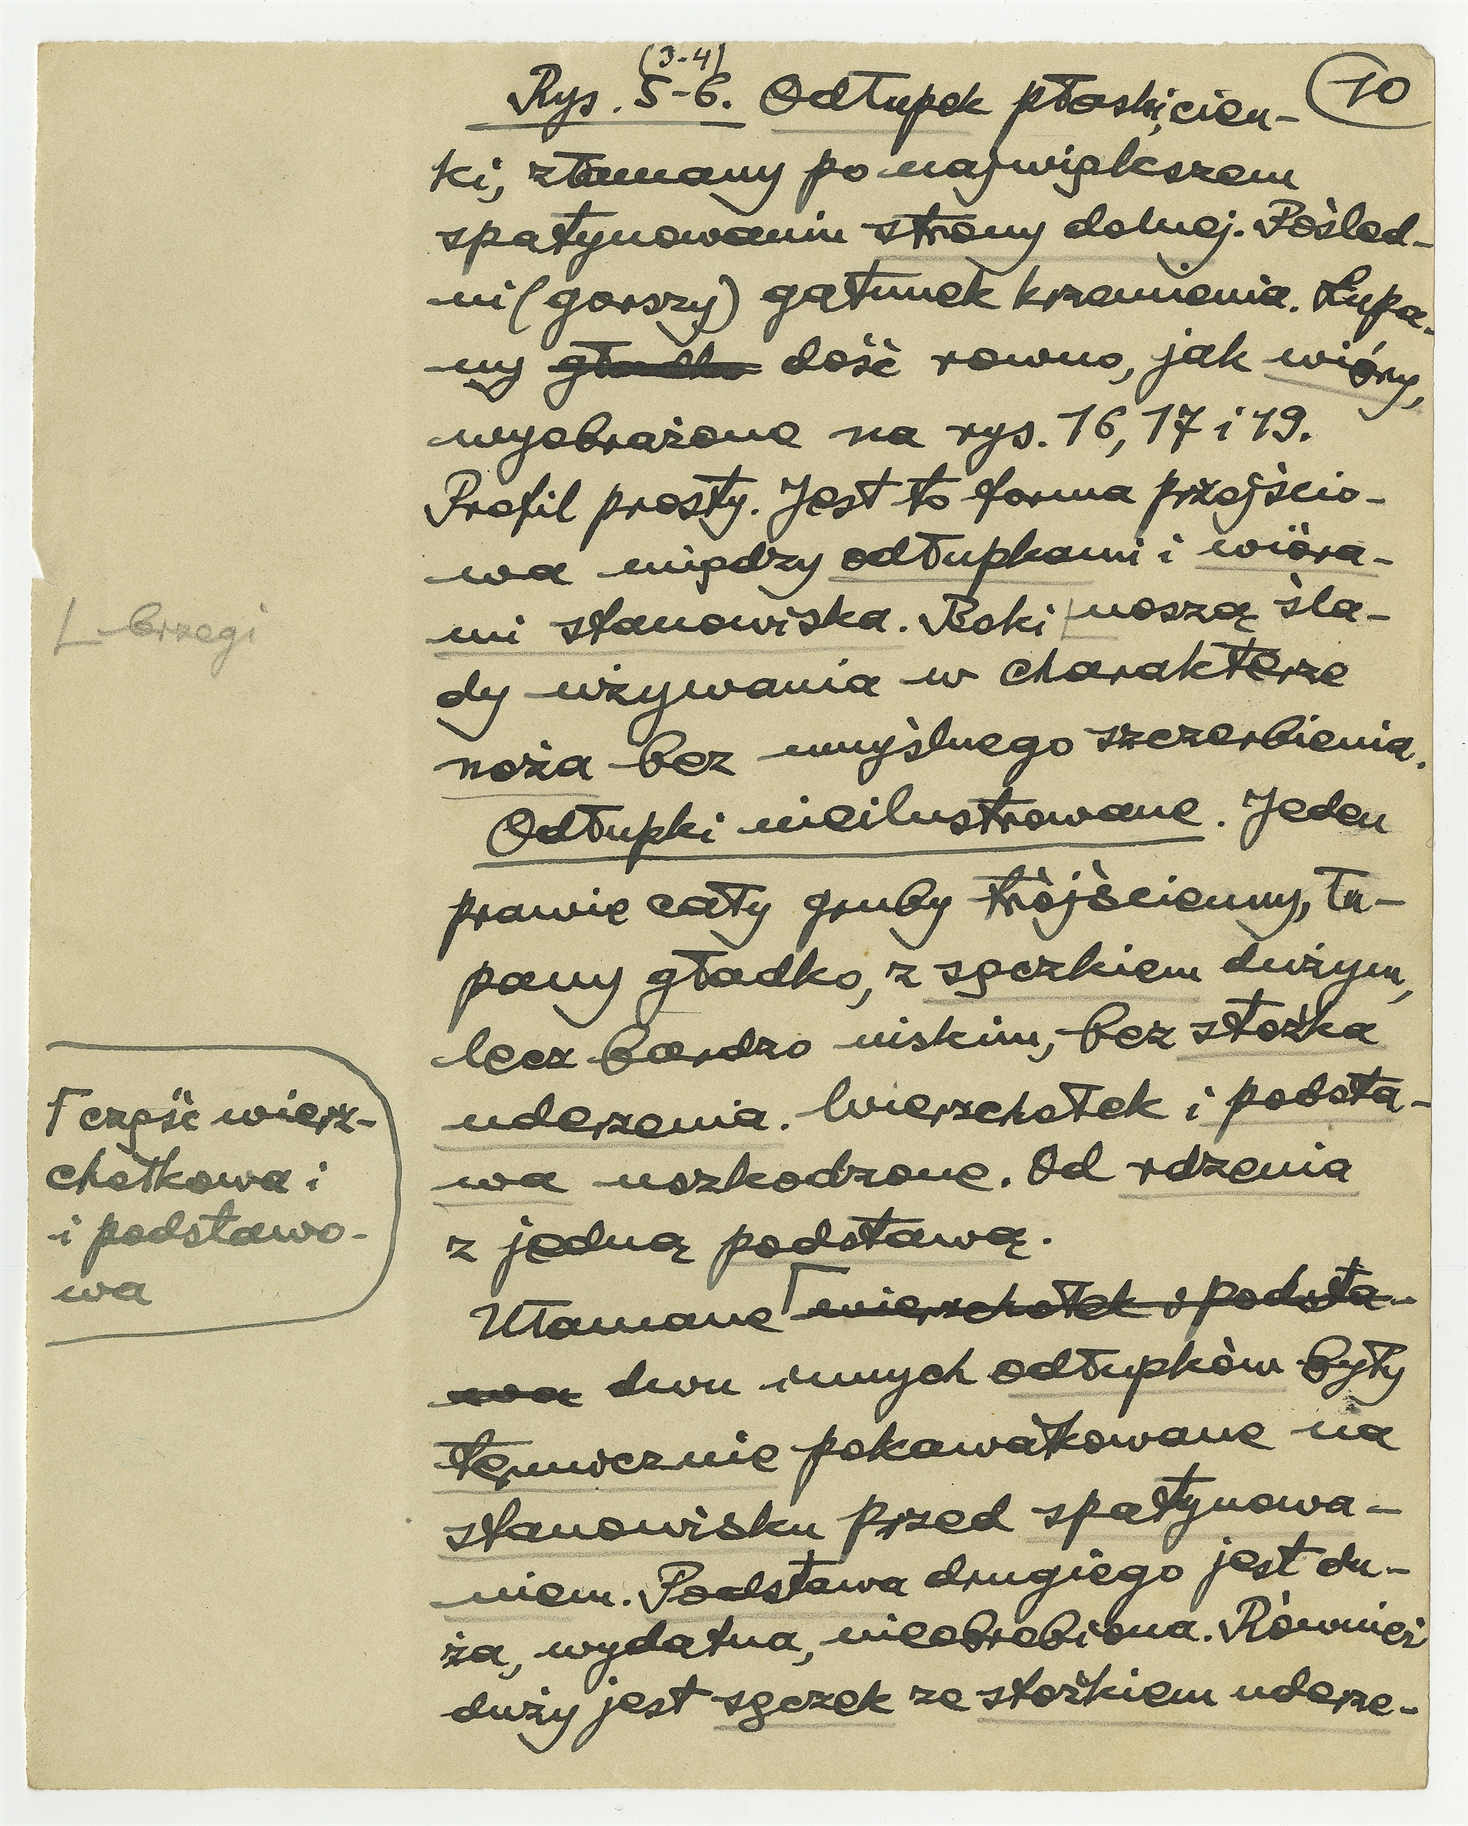 (3-4)
10
Rys. 5-6. Odłupek płaski, cien-
ki, złamany po największem
spatynowaniu strony dolnej. Pośled-
ni (gorszy) gatunek krzemienia. Łupa-
ny gładko dość rowno, jak wióry,
wyobrażone na rys. 16, 17 i 19.
Profil prosty. Jest to forma przejścio-
wa między odłupkami i wióra-
mi stanowiska. Boki noszą śla-
L brzegi
dy używania w charakterze
noża bez umyślnego szczerbienia.
Odłupki nieilustrowane. Jeden
prawie cały gruby trójścienny, łu-
pany gładko, z sęczkiem dużym,
lecz bardzo niskim, bez stożka
uderzenia. Wierzchołek i podsta-
wa uszkodzone. Od rdzenia
z jedną podstawą.
Γ część wierz-
chołkowa i
i podstawo-
wa
Ułamane Γ wierzchołek i podsta-
wa dwu innych odłupków były
termicznie pokawałkowane na
stanowisku przed spatynowa-
niem. Podstawa drugiego jest du-
ża, wydatna, nieobrobiona. Również
duży jest sęczek ze stożkiem uderze-